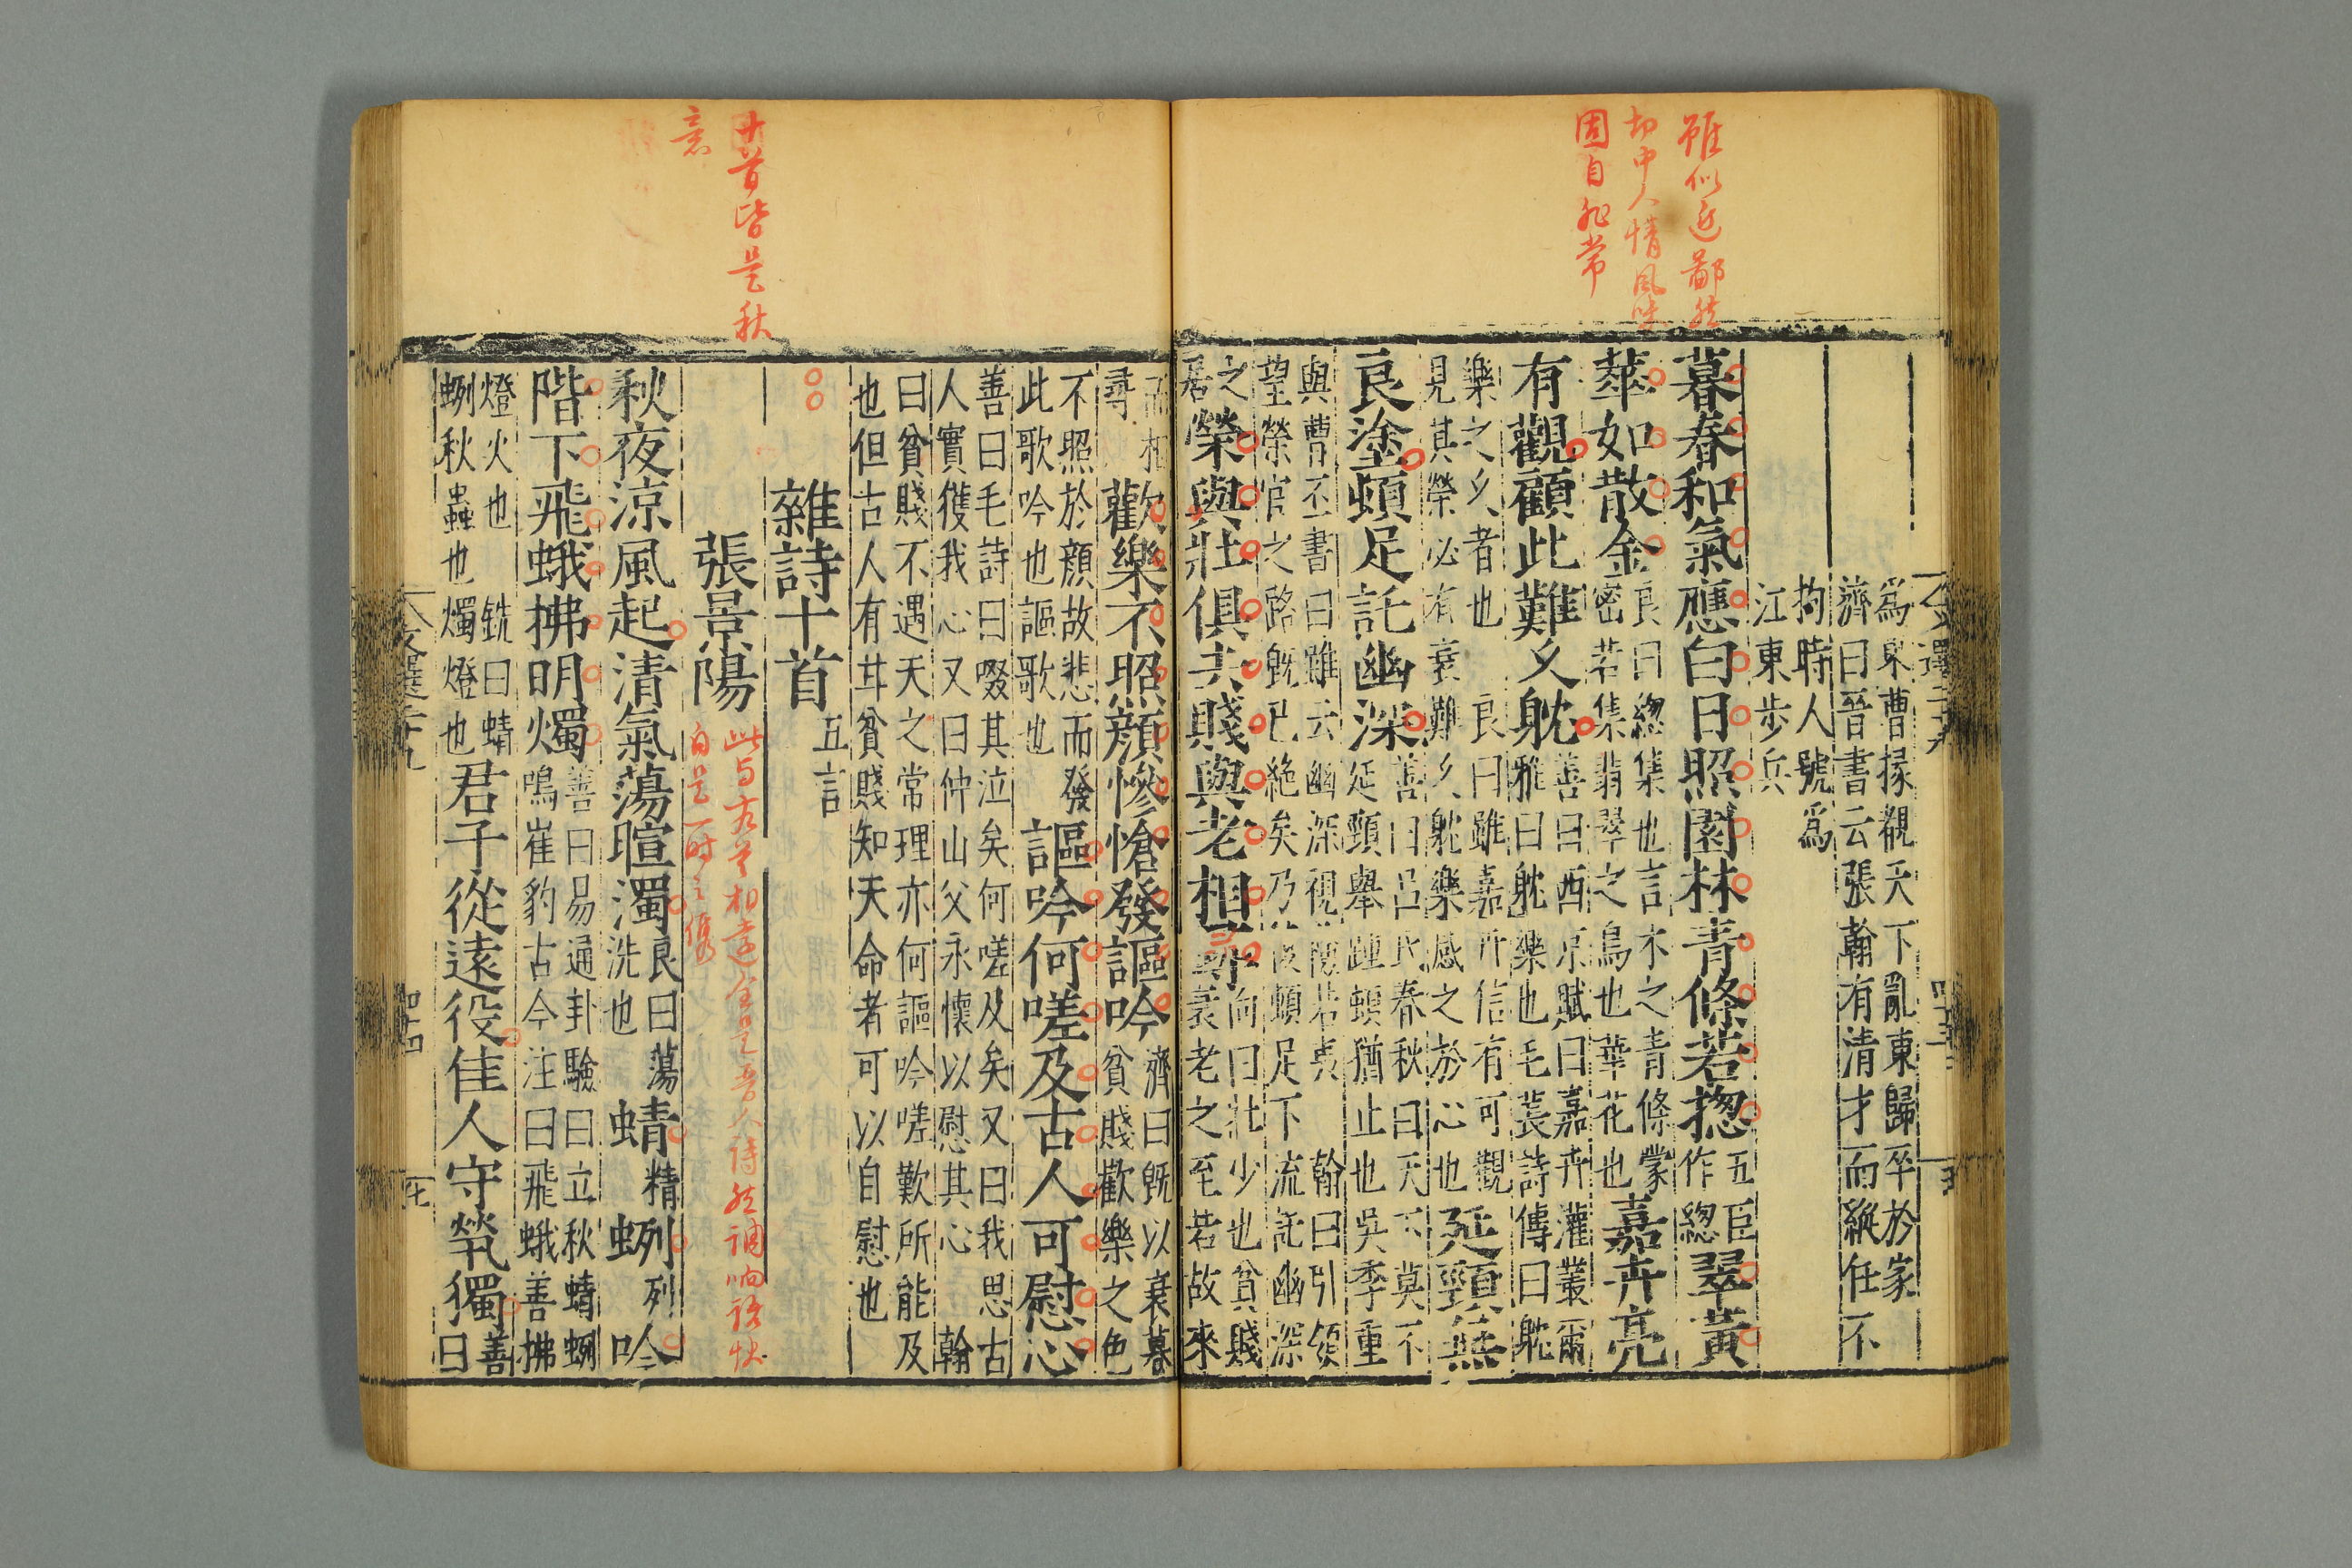 雖似近鄙然
切中人情風味
固自非常
爲東曹掾覩天下亂東歸卒於家
濟曰晉書云張翰有清才而縱任不
拘時人號爲
江東步兵
暮春和氣應白日照園林青條若摠五臣作緫翠黃
華如散金良曰緫集也言木之青條蒙密若集翡翠之鳥也華花也嘉卉亮
有觀顧此難久躭善曰西京賦曰嘉卉灌叢爾雅曰躭樂也毛萇詩傳曰躭
樂之久者也 良曰雖嘉卉信有可觀
見其榮必有衰難久躭樂感之於心也延頸無
良塗頓足託幽深善曰呂氏春秋曰天下莫不延頸舉踵頓猶止也吳季重
與曹丕書曰雖云幽深視險若夷 翰曰引領
望榮宦之路旣已絶矣乃頓足下流託幽深
之居榮與壯俱去賤與老相尋向曰壯少也貧賤衰老之至若故來
相尋歡樂不照顔慘愴發謳吟濟曰旣以衰暮貧賤歡樂之色
不照於顔故悲而發
此歌吟也謳歌也謳吟何嗟及古人可慰心
善曰毛詩曰啜其泣矣何嗟及矣又曰我思古
人實獲我心又曰仲山父永懷以慰其心 翰
曰貧賤不遇天之常理亦何謳吟嗟歎所能及
也但古人有甘貧賤知天命者可以自慰也
十首皆是秋
意
雜詩十首五言
張景陽
此与右首相遠全是晉人詩然調响語快
自是一時之儁
秋夜涼風起清氣蕩暄濁良曰蕩洗也蜻精蛚列吟
階下飛蛾拂明燭善曰易通卦驗曰立秋蜻蛚鳴崔豹古今注曰飛蛾善拂
燈火也 銑曰蜻
蛚秋蟲也燭燈也君子從遠役佳人守煢獨善曰
文選二十九